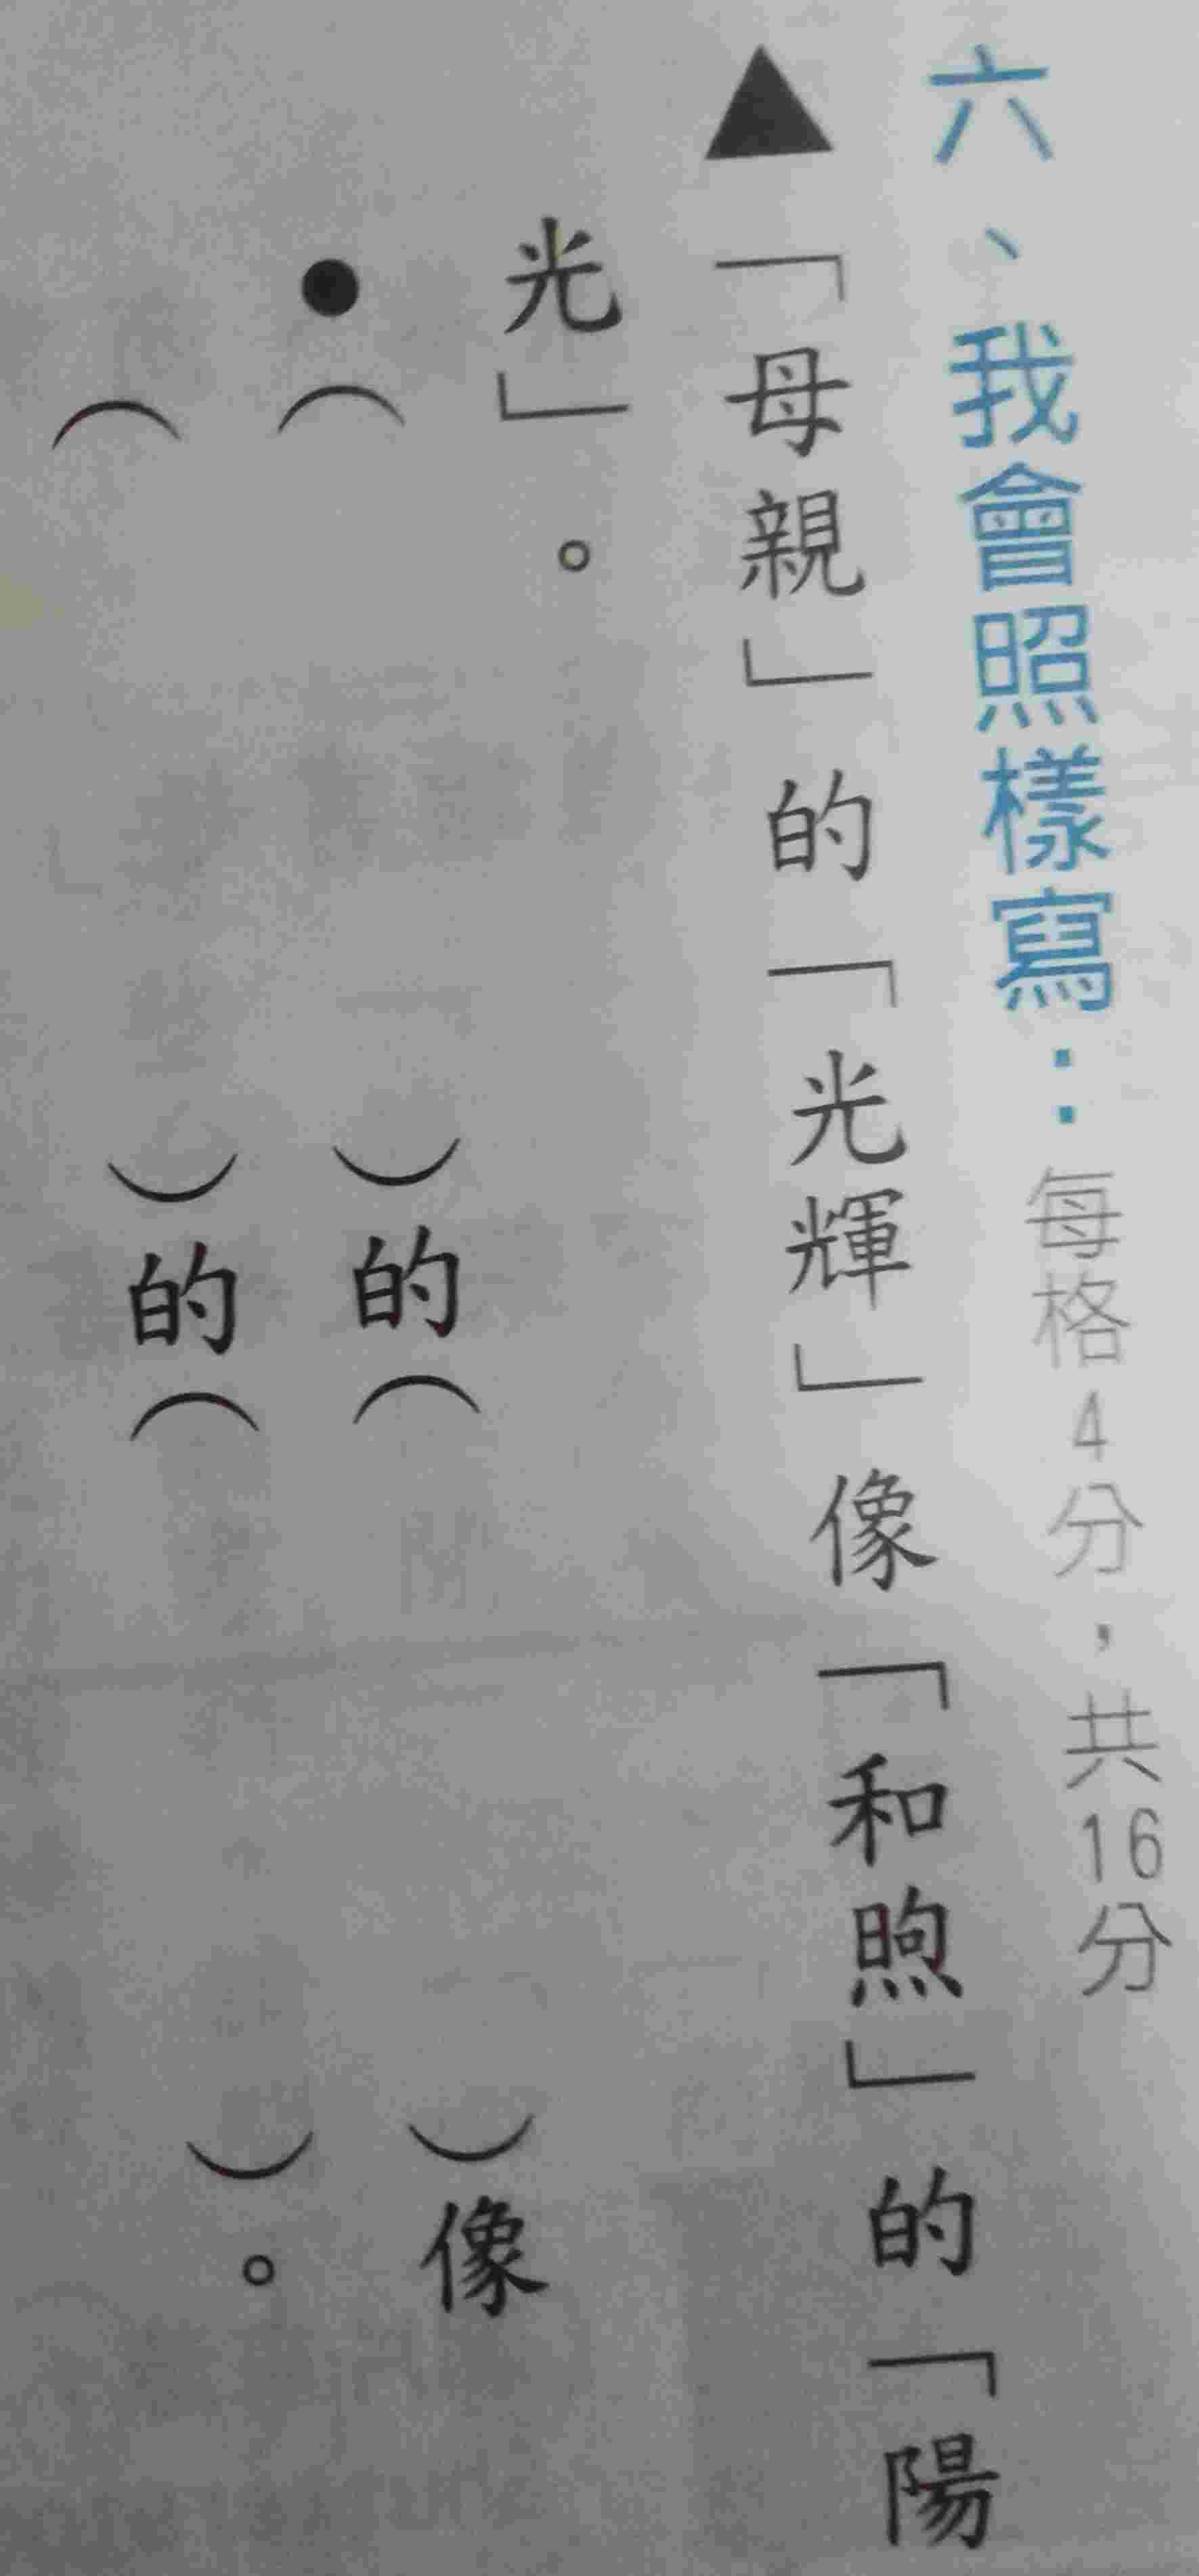 六、我會照樣寫：每格4分，共16分
▲「母親」的「光輝」像「和煦」的「陽
光」。
●（　　　）的（　　　）像
（　　　）的（　　　）。